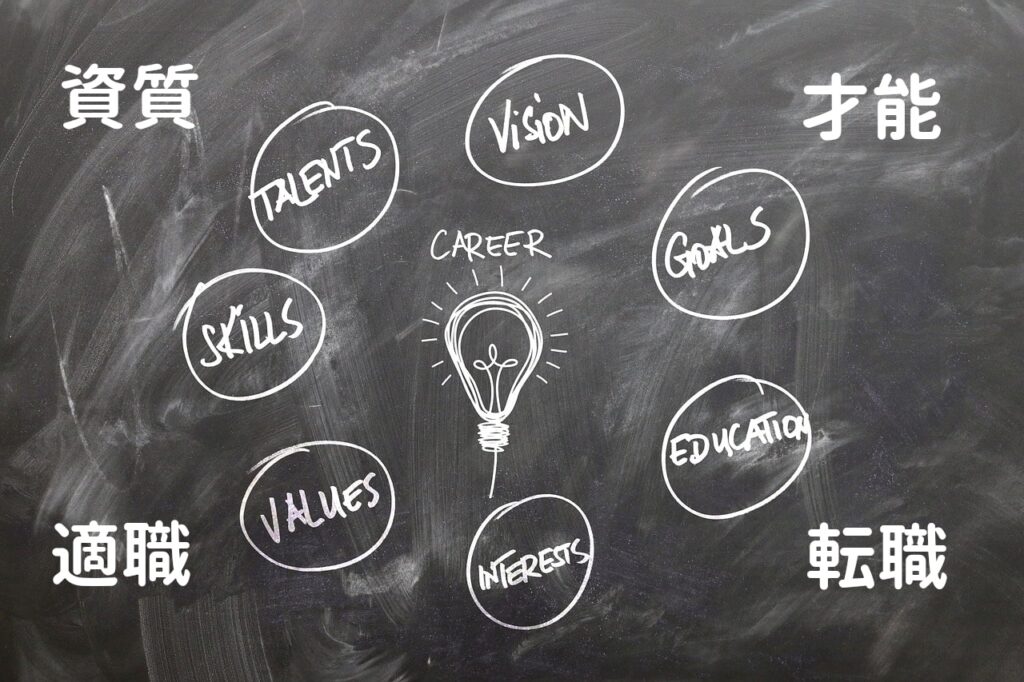 資質
才能
VISION
TALENTS
GOALS
CAREER
SKILLS
EDUCATION
VALUES
INTERESTS
適職
転職